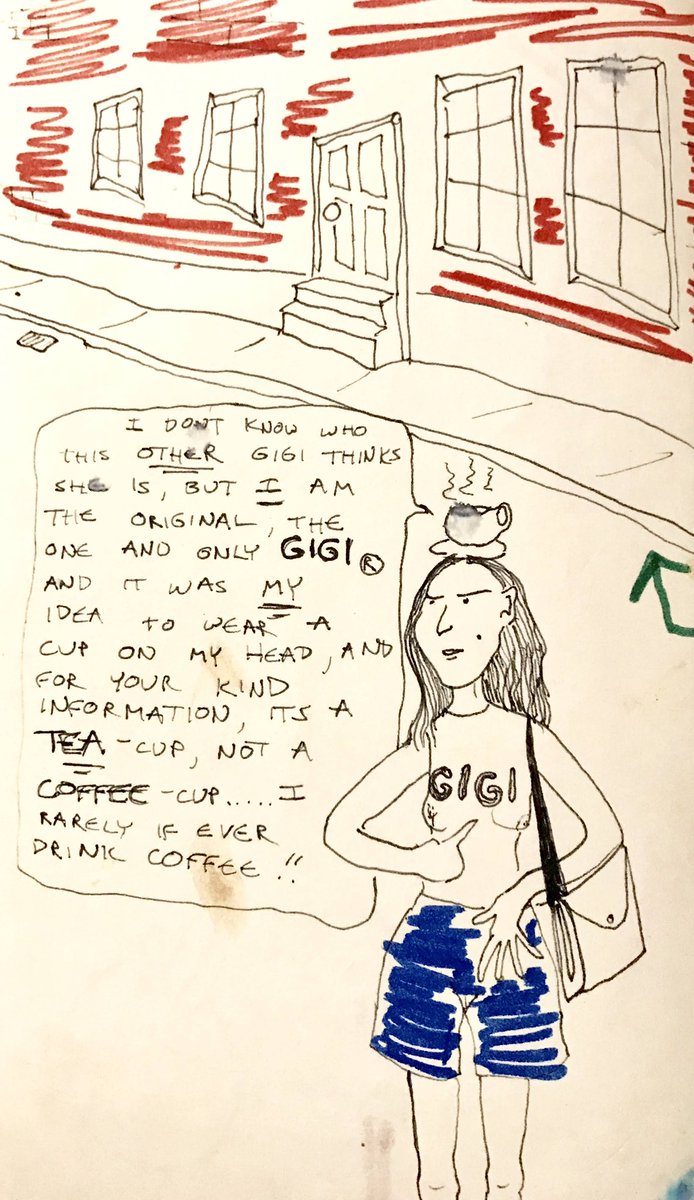 I DON'T KNOW WHO
THIS OTHER GIGI THINKS
SHE IS, BUT I AM
THE ORIGINAL, THE
ONE AND ONLY GIGI ®
AND IT WAS MY
IDEA TO WEAR A
CUP ON MY HEAD, AND
FOR YOUR KIND
INFORMATION, ITS A
TEA-CUP, NOT A
COFFEE-CUP..... I
RARELY IF EVER
DRINK COFFEE!!
GIGI